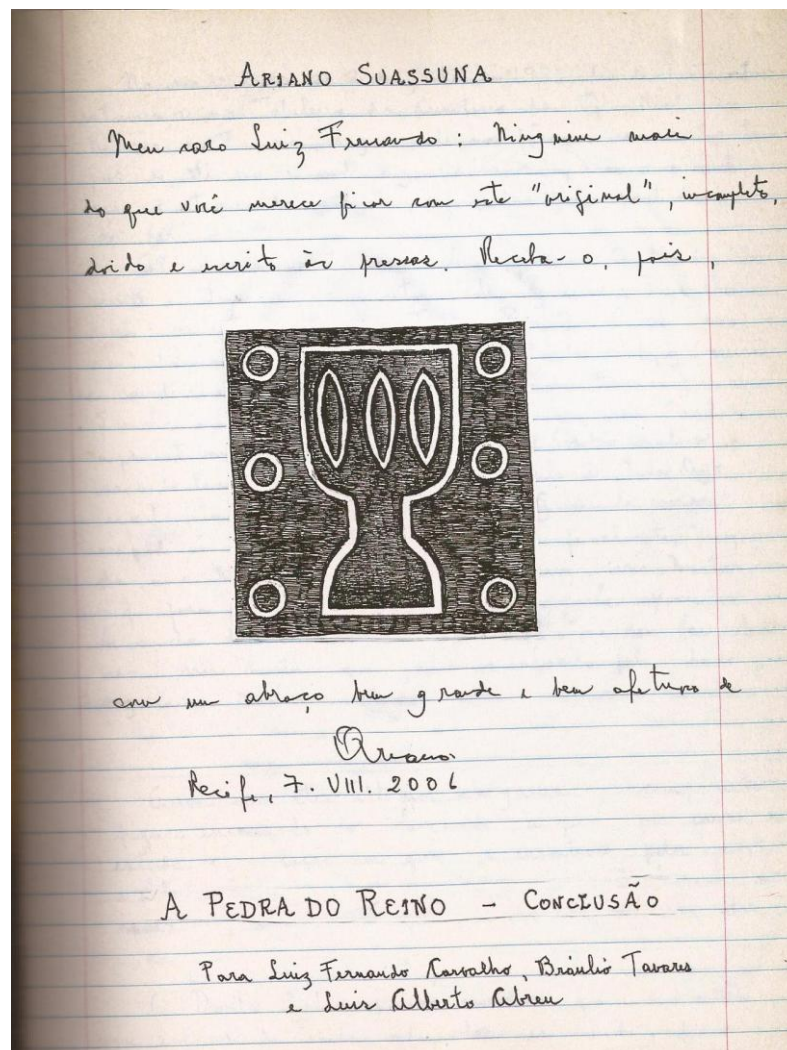 ARIANO SUASSUNA
Meu caro Luiz Fernando: Ninguém mais
do que você merece ficar com este "original", incompleto,
doido e escrito às pressas. Receba-o, pois,
com um abraço bem grande e bem afetuoso de
Ariano.
Recife, 7. VIII. 2006
A PEDRA DO REINO - CONCLUSÃO
Para Luiz Fernando Carvalho, Bráulio Tavares
e Luis Alberto Abreu